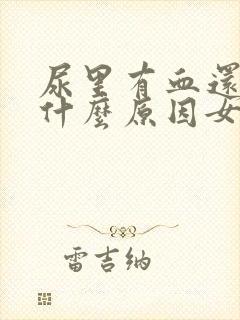 尿里有血還
什麼原因女
雷吉纳